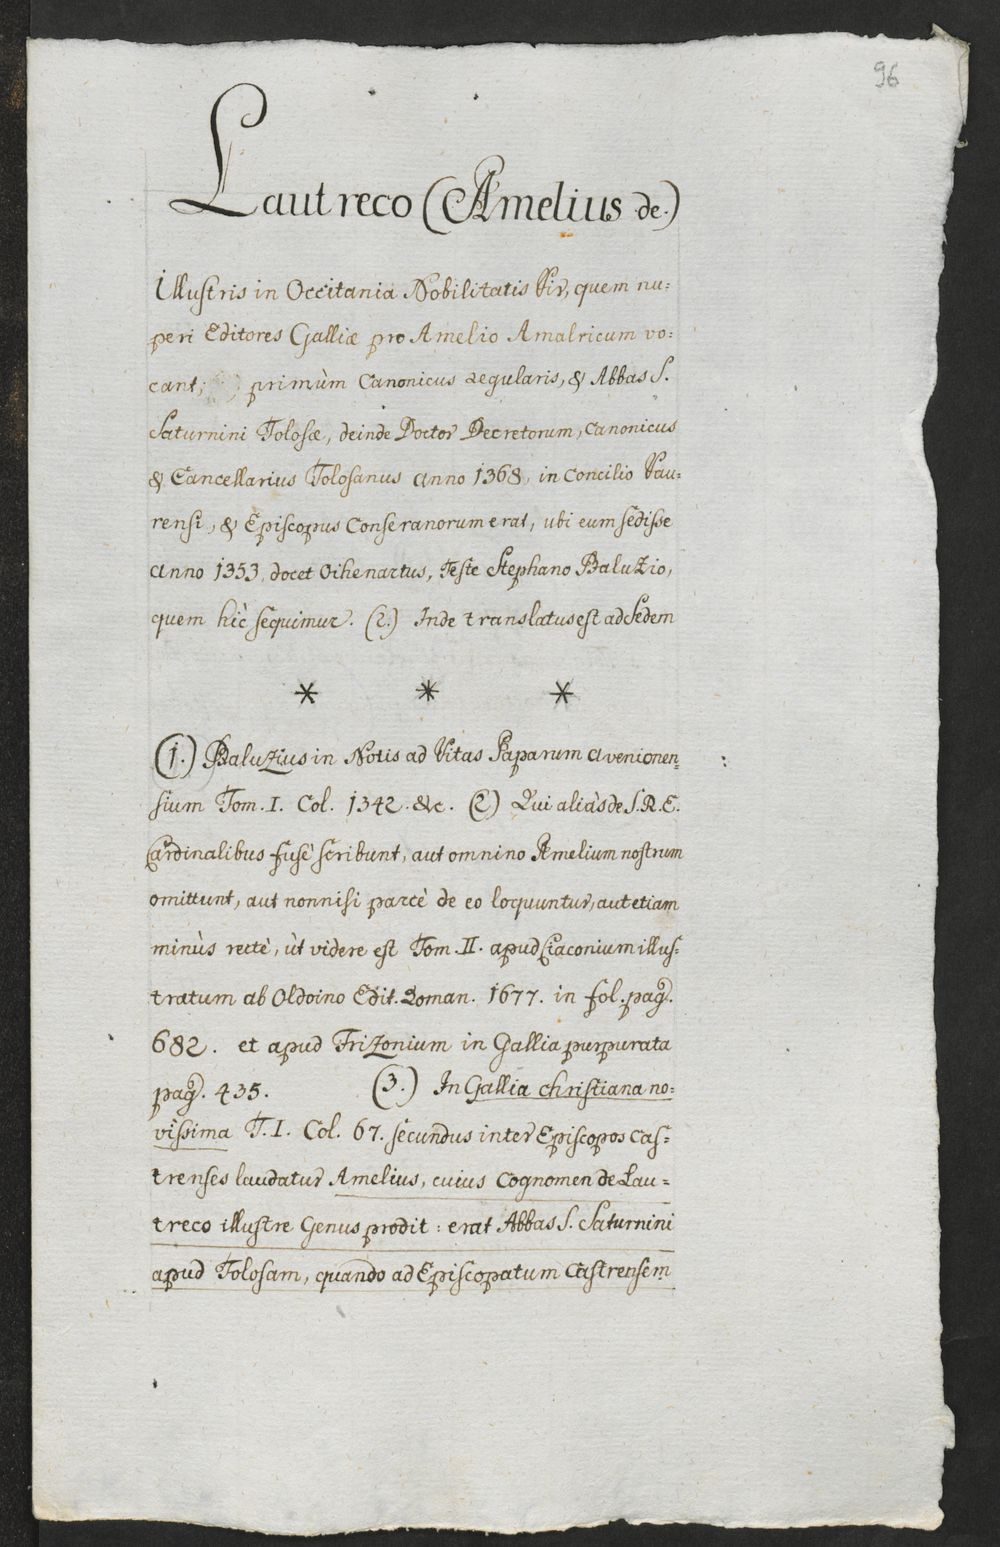 96
Lautreco (Amelius de.)
Illustris in Occitania Nobilitatis Vir, quem nu:
peri Editores Galliæ pro Amelio Amalricum vo:
cant; primùm Canonicus regularis, & Abbas S.
Saturnini Tolosæ, deinde Doctor Decretorum, Canonicus
& Cancellarius Tolosanus anno 1368, in Concilio Vau:
rensi, & Episcopus Conseranorum erat, ubi eum sedisse
anno 1353, docet Oihenartus, Teste Stephano Baluzio,
quem hîc sequimur. (2.) Inde translatus est ad Sedem
* * *
(1.) Baluzius in Notis ad Vitas Paparum Avenionen:
sium Tom. I. Col. 1342. &c. (2) Qui aliàs de S. R. E.
Cardinalibus fusè scribunt, aut omnino Amelium nostrum
omittunt, aut nonnisi parcè de eo loquuntur, aut etiam
minùs rectè, ùt videre est Tom. II. apud Ciaconium illus:
tratum ab Oldoino Edit. Roman. 1677. in fol. pag.
682. et apud Frizonium in Gallia purpurata
pag. 435. (3.) In Gallia christiana no:
vissima T. I. Col. 67. secundus inter Episcopos Cas:
trenses laudatur Amelius, cuius Cognomen de Lau:
treco illustre Genus prodit: erat Abbas S. Saturnini
apud Tolosam, quando ad Episcopatum Castrensem